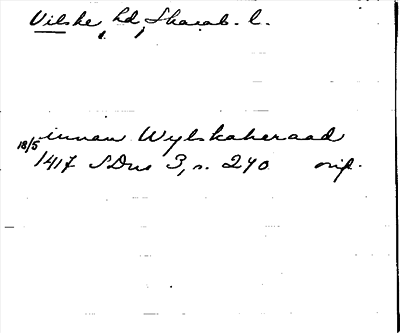 Vilske, hd, Skarab. l.
innan Wylskaheraad
18/5 1417 SDns 3, s. 240 orig.